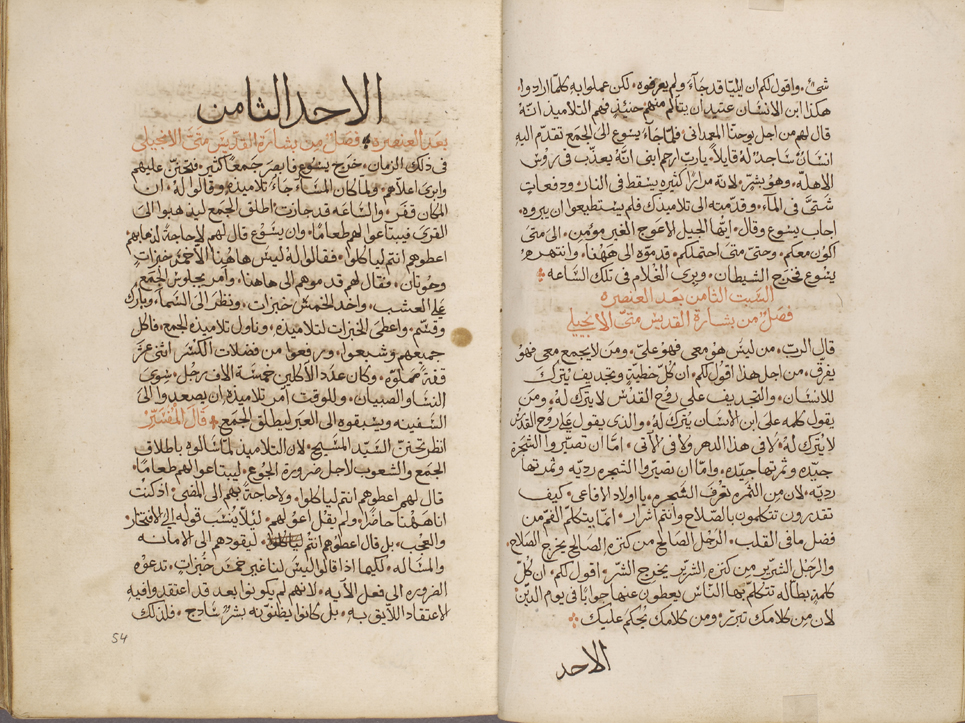 شئ. واقول لكم ان ايليا قد جاء ولم يعرفوه. لكن عملوا به كلما ارادوا.
هكذا ابن الانسان عتيد ان يتالم منهم حينيذٍ فهم التلاميذ انه
قال لهم من اجل يوحنا المعمداني فلما جاء يسوع الى الجمع تقدم اليه
انسان ساجد له قايلاً. يارب ارحم ابني انه يعذب في روس
الاهله. وهو بشر. لانه مراراً كثيره يسقط في النار. ودفعات
شتى في المآء. وقدمته الى تلاميذك فلم يستطيعوا ان يبروه.
اجاب يسوع وقال. ايها الجيل الاعوج الغير مومن. الى متى
اكون معكم. وحتى متى احتملكم. قدموه الى ههنا. وانتهره
يسوع فخرج الشيطان. وبرى الغلام في تلك الساعه
السبت الثامن بعد العنصره
فصل من بشارة القديس متى الانجيلي
قال الرب. من ليس هو معي فهو علي. ومن لا يجمع معي فهو
يفرق. من اجل هذا اقول لكم. ان كل خطيةٍ وتجديف يترك
للانسان. والتجديف على روح القدس لا يترك له. ومن
يقول كلمه على ابن الانسان يترك له. والذي يقول على روح القدس
لا يترك له. لا في هذا الدهر ولا في الاتي. اما ان تصيروا الشجرة
جيده وثمرتها جيده. واما ان تصيروا الشجره رديه وثمرتها
رديه. لان من الثمره تعرف الشجره. يا اولاد الافاعي. كيف
تقدرون تتكلمون بالصلاح وانتم اشرار. انما يتكلم الفم من
فضل ما في القلب. الرجل الصالح من كنزه الصالح يخرج الصلاح.
والرجل الشرير من كنزه الشرير يخرج الشر. اقول لكم. ان كل
كلمةٍ بطاله تتكلم بها الناس يعطون عنها جواباً في يوم الدين.
لان من كلامك تتبرر. ومن كلامك يحكم عليك
الاحد
الاحد الثامن
بعد العنصره فصل من بشارة القديس متى الانجيلي
في ذلك الزمان. خرج يسوع فابصر جمعاً كثير. فتحنن عليهم
وابرى اعلاهم. ولما كان المساء جاء تلاميذه وقالوا له. ان
المكان قفر. والساعه قد جازت. اطلق الجمع ليذهبوا الى
القرى فيبتاعوا لهم طعاماً. وان يسوع قال لهم لا حاجة لذهابهم
اعطوهم انتم لياكلوا. فقالوا له ليس هاهنا الا خمس خبزات
وحوتان. فقال لهم قدموهم الى هاهنا. وامر بجلوس الجمع
على العشب. واخد الخمس خبزات. ونظر الى السما. وبارك
وقسم. واعطى الخبزات لتلاميذه. وناول تلاميذه الجمع. فاكل
جميعهم وشبعوا. ورفعوا من فضلات الكسر اثنى عشر
قفة مملوة. وكان عدد الآكلين خمسة الاف رجل. سوى
النسا والصبيان. وللوقت امر تلاميذه ان يصعدوا الى
السفينه ويسبقوه الى العبر ليطلق الجمع. قال المفسر
انظر تحنن السيد المسيح. لان التلاميذ لما سالوه باطلاق
الجمع والشعوب لاجل ضرورة الجوع. ليبتاعوا لهم طعاماً.
قال لهم اعطوهم انتم لياكلوا. ولا حاجة بهم الى المضي. اذ كنت
انا هاهنا حاضراً. ولم يقل اعوا لهم. لئلا ينسب قوله الى الافتخار
والعجب. بل قال اعطوهم انتم لياكلوا. ليقودهم الى الامانه
والمساله. لكيما اذا قالوا ليس لنا غير خمس خبزات. تدعوه
الضروره الى فعل الآيه. لانهم لم يكونوا بعد قد اعتقدوا فيه
الاعتقاد اللايق به. بل كانوا يظنونه بشر سادج. فلذلك
54